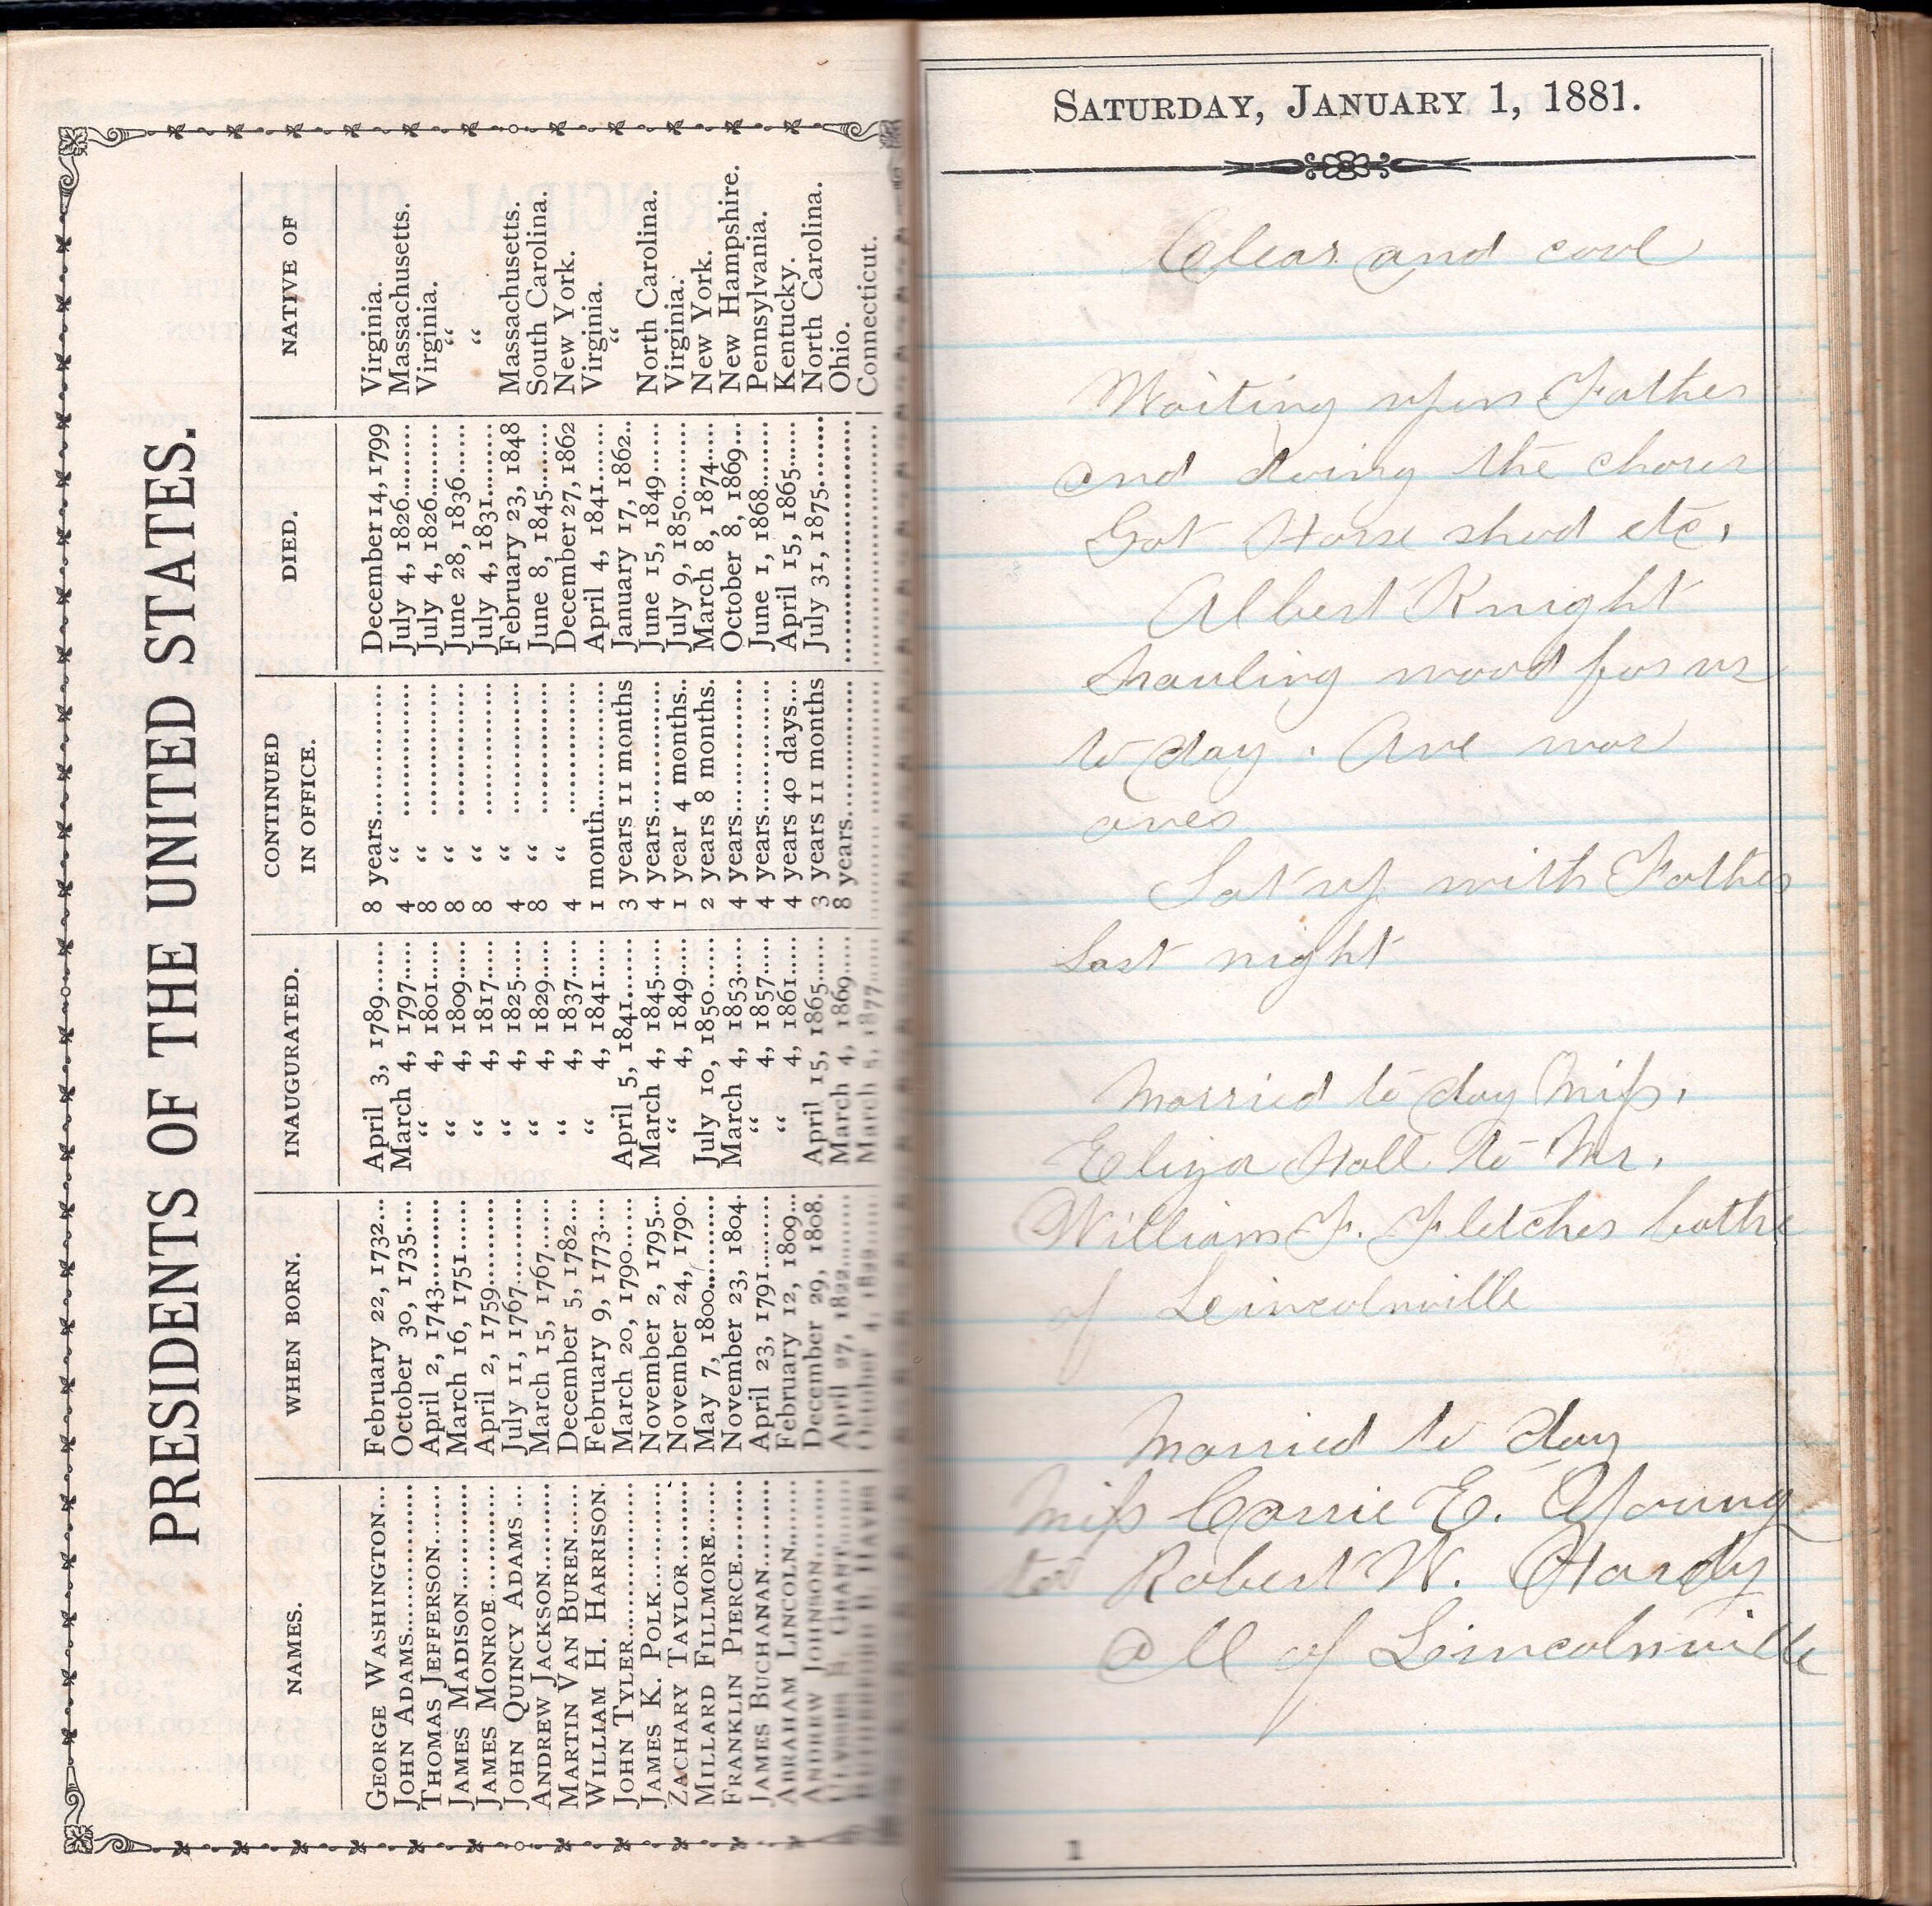 PRESIDENTS OF THE UNITED STATES.
NAMES. WHEN BORN. INAUGURATED. CONTINUED IN OFFICE. DIED. NATIVE OF
GEORGE WASHINGTON... February 22, 1732... April 3, 1789...... 8 years............... December 14, 1799 Virginia.
JOHN ADAMS............... October 30, 1735.... March 4, 1797..... 4 “ ............... July 4, 1826......... Massachusetts.
THOMAS JEFFERSON....... April 2, 1743.......... “ 4, 1801..... 8 “ ............... July 4, 1826......... Virginia.
JAMES MADISON............ March 16, 1751....... “ 4, 1809..... 8 “ ............... June 28, 1836...... “
JAMES MONROE............ April 2, 1759.......... “ 4, 1817..... 8 “ ............... July 4, 1831......... “
JOHN QUINCY ADAMS ... July 11, 1767.......... “ 4, 1825..... 4 “ ............... February 23, 1848 Massachusetts.
ANDREW JACKSON......... March 15, 1767....... “ 4, 1829..... 8 “ ............... June 8, 1845......... South Carolina.
MARTIN VAN BUREN...... December 5, 1782... “ 4, 1837..... 4 “ ............... December 27, 1862 New York.
WILLIAM H. HARRISON. February 9, 1773.... “ 4, 1841..... 1 month............... April 4, 1841......... Virginia.
JOHN TYLER............... March 20, 1790....... April 5, 1841....... 3 years 11 months January 17, 1862.. “
JAMES K. POLK............ November 2, 1795... March 4, 1845..... 4 years............... June 15, 1849...... North Carolina.
ZACHARY TAYLOR......... November 24, 1790. “ 4, 1849..... 1 year 4 months.. July 9, 1850......... Virginia.
MILLARD FILLMORE...... May 7, 1800............ July 10, 1850...... 2 years 8 months. March 8, 1874...... New York.
FRANKLIN PIERCE......... November 23, 1804. March 4, 1853..... 4 years............... October 8, 1869... New Hampshire.
JAMES BUCHANAN......... April 23, 1791......... “ 4, 1857..... 4 years............... June 1, 1868......... Pennsylvania.
ABRAHAM LINCOLN...... February 12, 1809... “ 4, 1861..... 4 years 40 days... April 15, 1865...... Kentucky.
ANDREW JOHNSON......... December 29, 1808. April 15, 1865...... 3 years 11 months July 31, 1875......... North Carolina.
ULYSSES S. GRANT......... April 27, 1822......... March 4, 1869..... 8 years............... Ohio.
RUTHERFORD B. HAYES October 4, 1822 March 5, 1877..... Connecticut.
SATURDAY, JANUARY 1, 1881.
Clear and cool
Waiting upon Father
and doing the chores
Got Horse shod etc.
Albert Knight
hauling wood for us
to day. Ave was
over
Sat up with Father
last night
Married to day Miss.
Eliza Hall to Mr.
William F. Fletcher bothe
of Leincolnville
Married to day
Miss Carrie E. Young
to Robert W. Hardy
All of Leincolnville
1